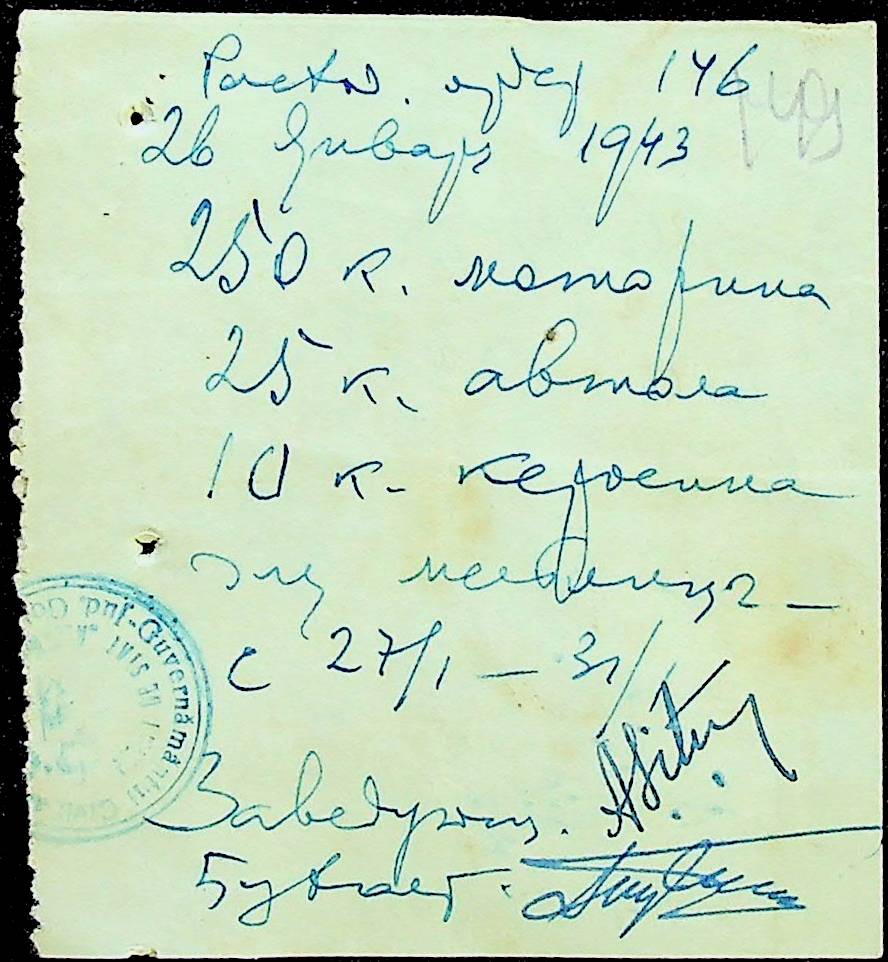 Расход. ордер 146
26 Января 1943
250 к. моторина
25 к. автола
10 к. керосина
для мельницы
с 27/I – 31/
Заведующ.
Бухгалт.
Jud.-Guvernământu